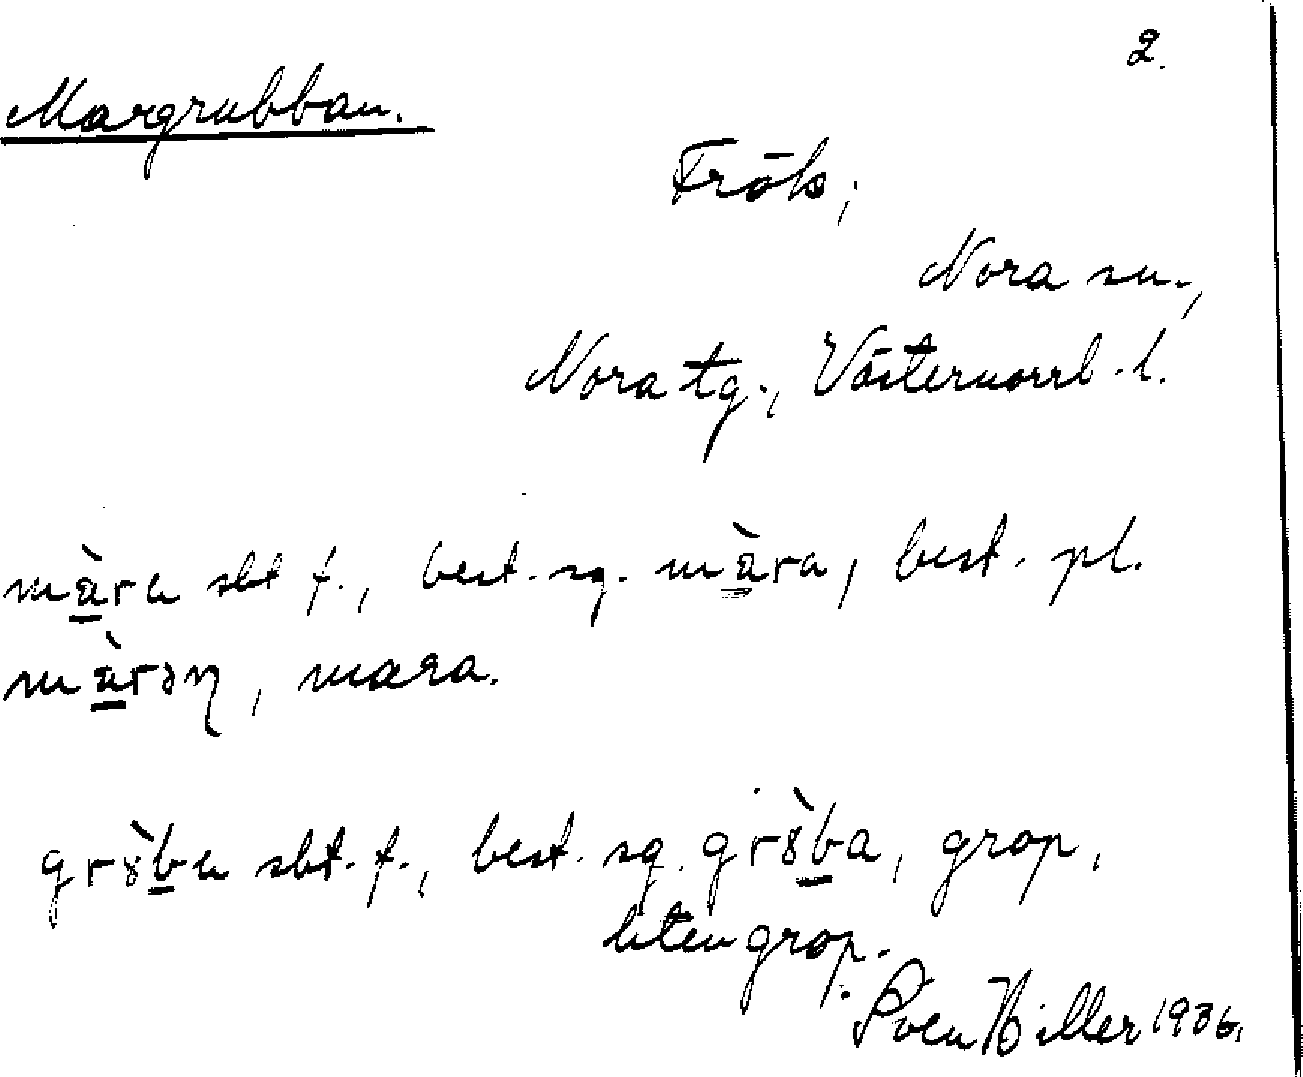 2.
Margrubban.
Fröks,
Nora sn.,
Nora tg., Västernorrl. l.
màra sbt f., best. sg. màra, best. pl.
màrəŋ, mara.
grȣ̀ba sbt. f., best. sg. grȣ̀ba, grop,
liten grop.
Sven Hiller 1936.